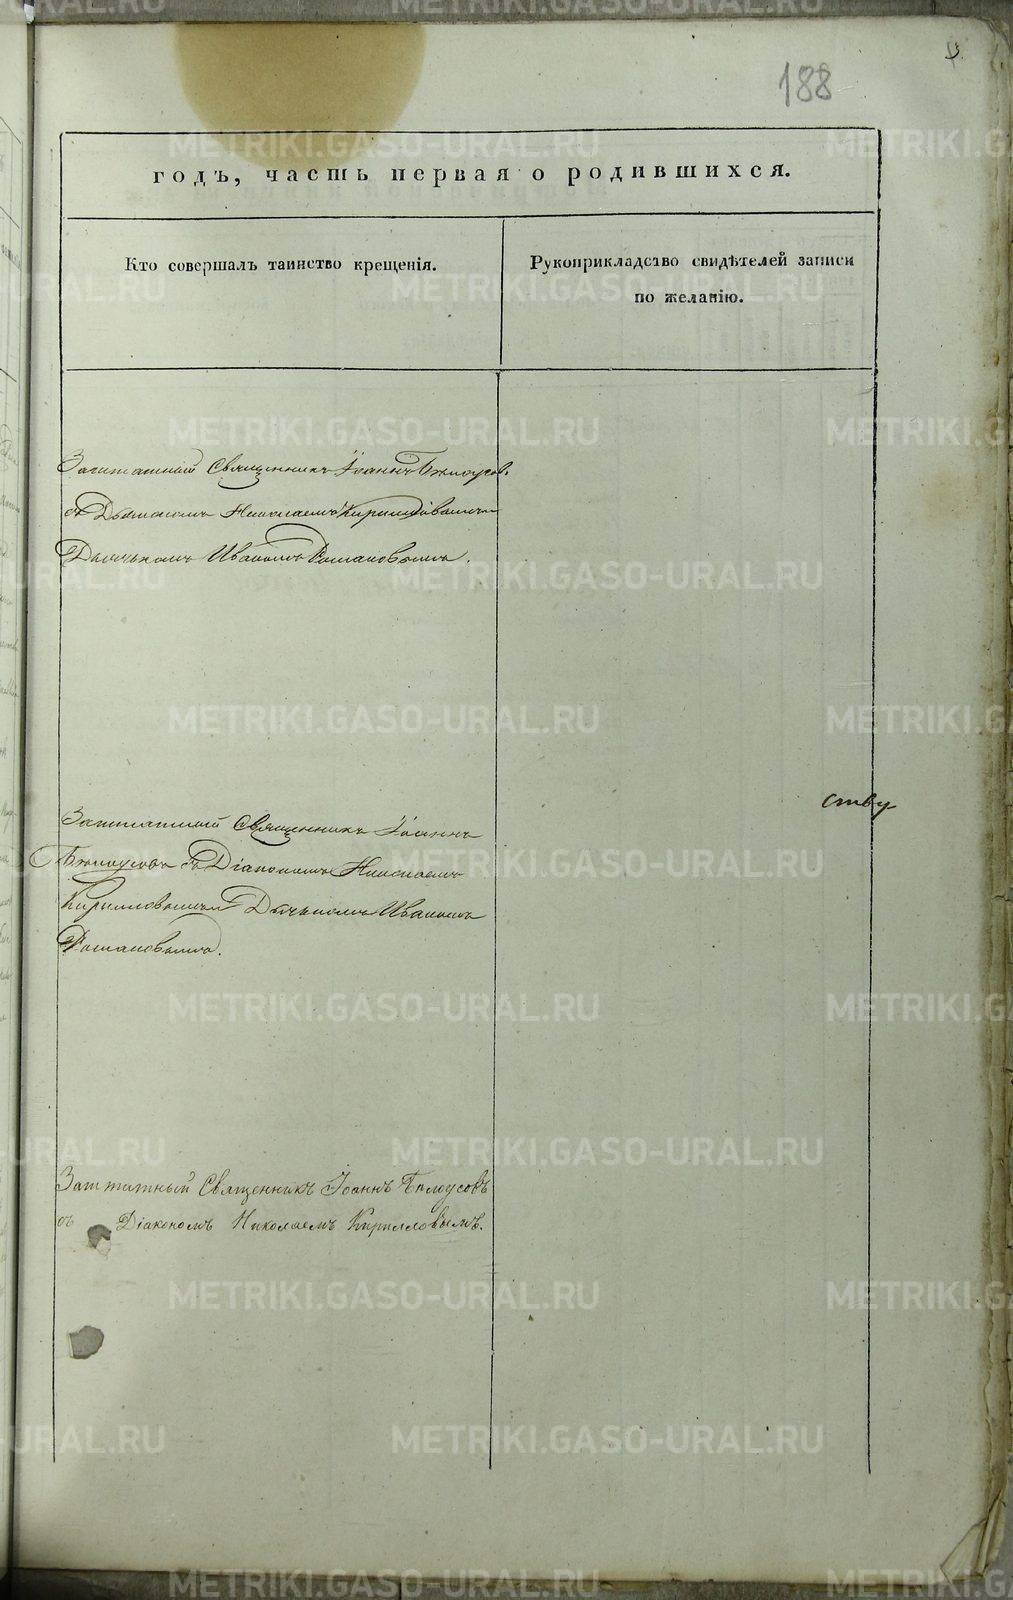 188
годъ, часть первая о родившихся.
Кто совершалъ таинство крещенія.
Рукоприкладство свидѣтелей записи
по желанію.
Заштатный Священникъ Іоаннъ Бѣлоусовъ
съ Діакономъ Николаемъ Кирилловымъ
Дьячкомъ Иваномъ Романовымъ.
ству
Заштатный Священникъ Іоаннъ
Бѣлоусовъ съ Діакономъ Николаемъ
Кирилловымъ Дьячкомъ Иваномъ
Романовымъ.
Заштатный Священникъ Іоаннъ Бѣлоусовъ
съ Діакономъ Николаемъ Кирилловымъ.
METRIKI.GASO-URAL.RU